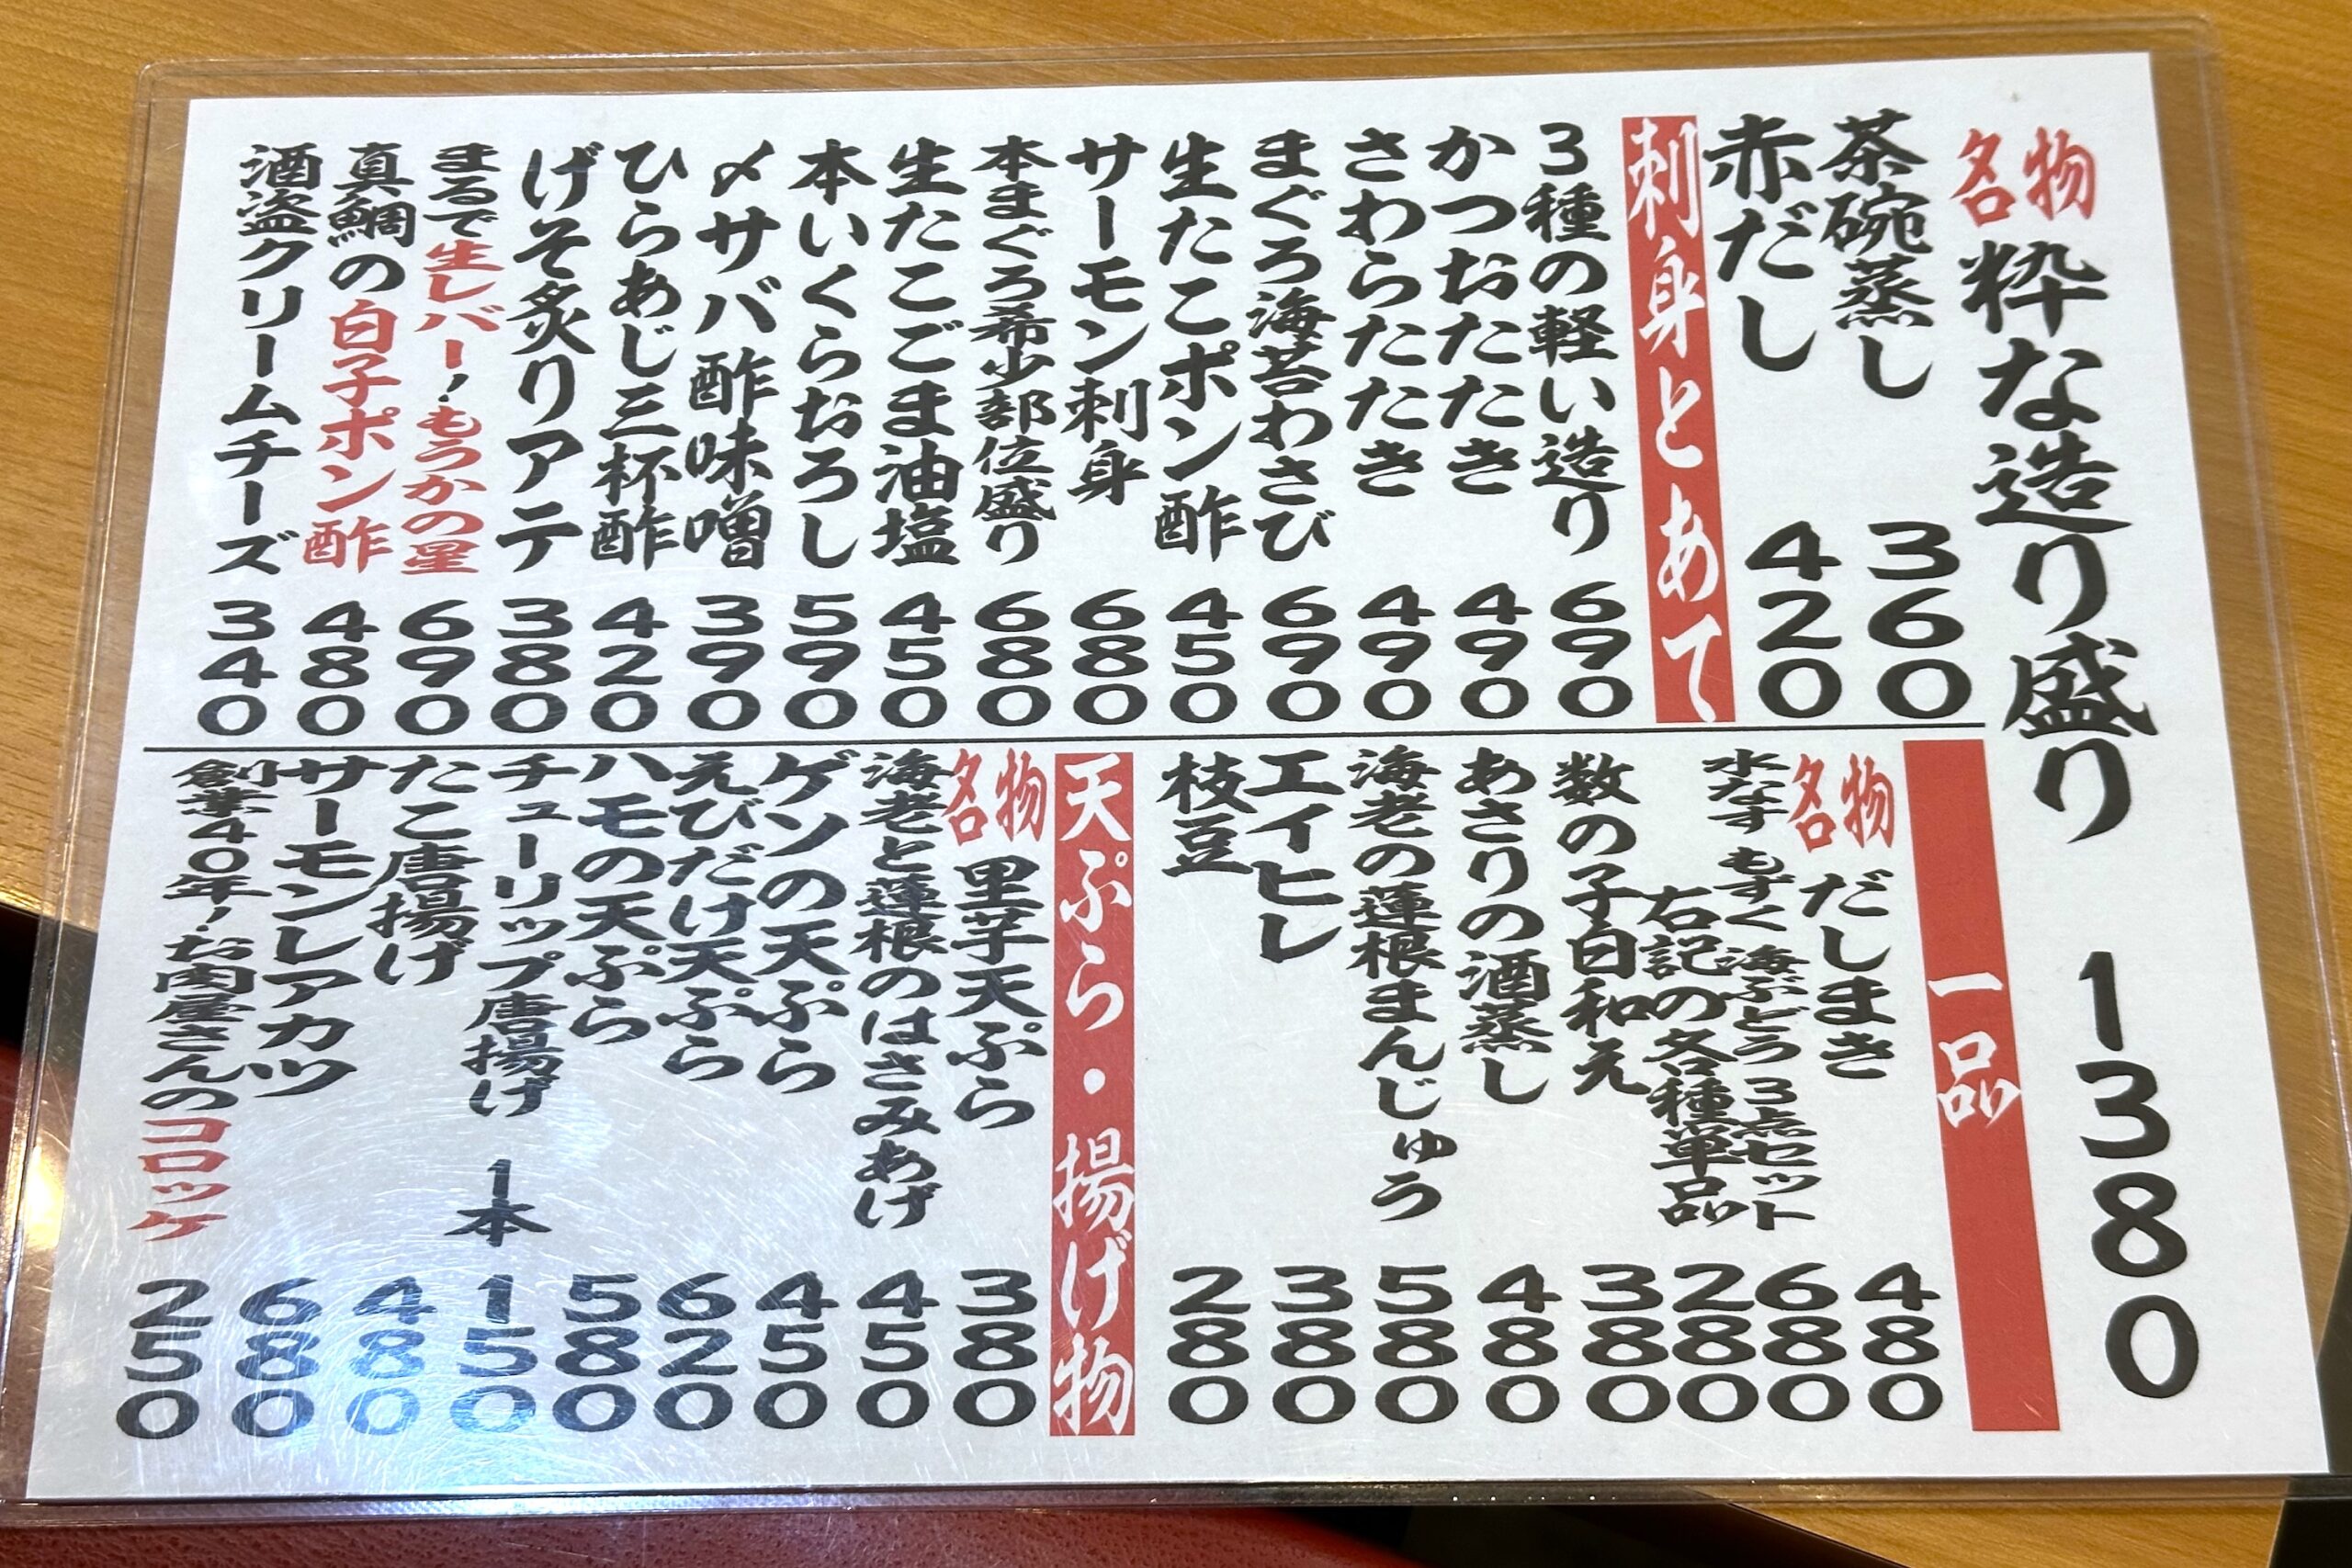 名物 粋な造り盛り 1380
茶碗蒸し 360
赤だし 420
刺身とあて
3種の軽い造り 690
かつおたたき 490
さわらたたき 490
まぐろ海苔わさび 690
生たこポン酢 450
サーモン刺身 680
本まぐろ希少部位盛り 680
生たこごま油塩 450
本いくらおろし 590
〆サバ酢味噌 390
ひらあじ三杯酢 420
げそ炙りアテ 380
まるで生レバー！もうかの星 690
真鯛の白子ポン酢 480
酒盗クリームチーズ 340
一品
名物 だしまき 480
水なす もずく 海ぶどう 3点セット 680
右記の各種単品 280
数の子白和え 380
あさりの酒蒸し 480
海老の蓮根まんじゅう 580
エイヒレ 380
枝豆 280
天ぷら・揚げ物
名物 里芋天ぷら 380
海老と蓮根のはさみあげ 450
ゲソの天ぷら 450
えびだけ天ぷら 620
ハモの天ぷら 580
チューリップ唐揚げ 1本 150
たこ唐揚げ 480
サーモンレアカツ 680
創業40年！お肉屋さんのコロッケ 250